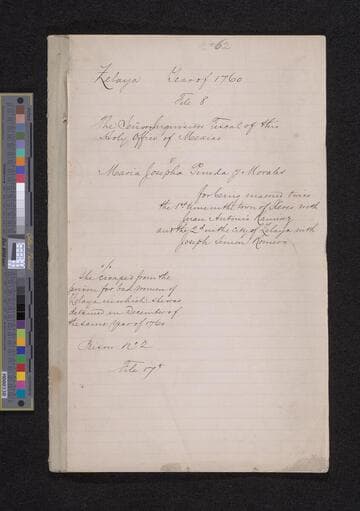 62
Zelaya Year of 1760
File 8
The Señor Inquisitor Fiscal of this
Holy Office of Mexico
Maria Josepha Pineda y Morales
for being married twice
the 1st time in the town of Xeres with
Juan Antonio Ramirez
and the 2d in the city of Zelaya with
Joseph Simon Romero
She escaped from the
prison for bad women of
Zelaya in which she was
detained in December of
the same year of 1760
No 2
File 17